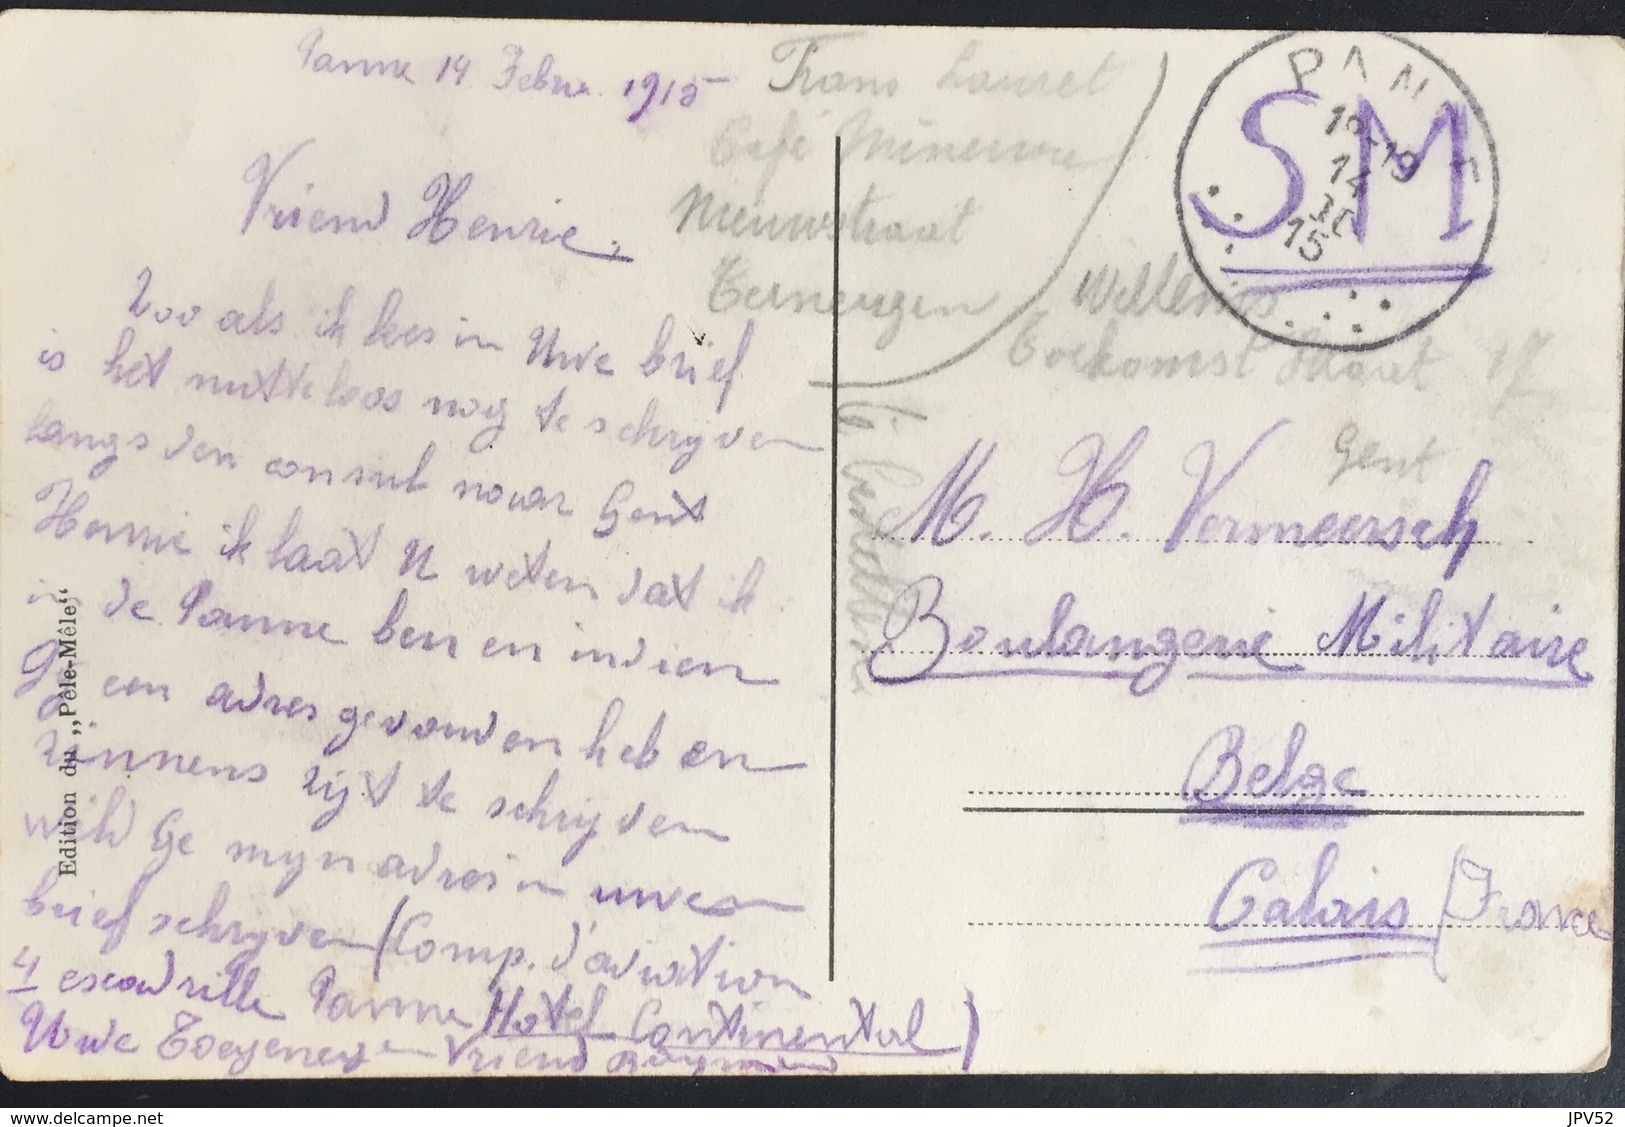 Panne 14 Febru. 1915
Vriend Henrie,
Zoo als ik lees in Uwe brief
is het nutteloos nog te schryven
langs den consul naar Gent
Henrie ik laat U weten dat ik
in de Panne ben en indien
Gy een adres gevonden heb en
zinnens zyt te schryven
wild Ge myn adres in uwen
brief schryven (Comp. d'aviation
4 escadrille Panne Hotel Continental)
Uwe Toegenegen Vriend Raymond
Edition du „Pêle-Mêle“
Frans Lauret
Café Minerve
Nieuwstraat
Terneuzen
Willems
Toekomst straat 17
Gent
PANNE
14
15
SM
M. H. Vermeersch
Boulangerie Militaire
Belge
Calais (France
delcampe.net
JPV52